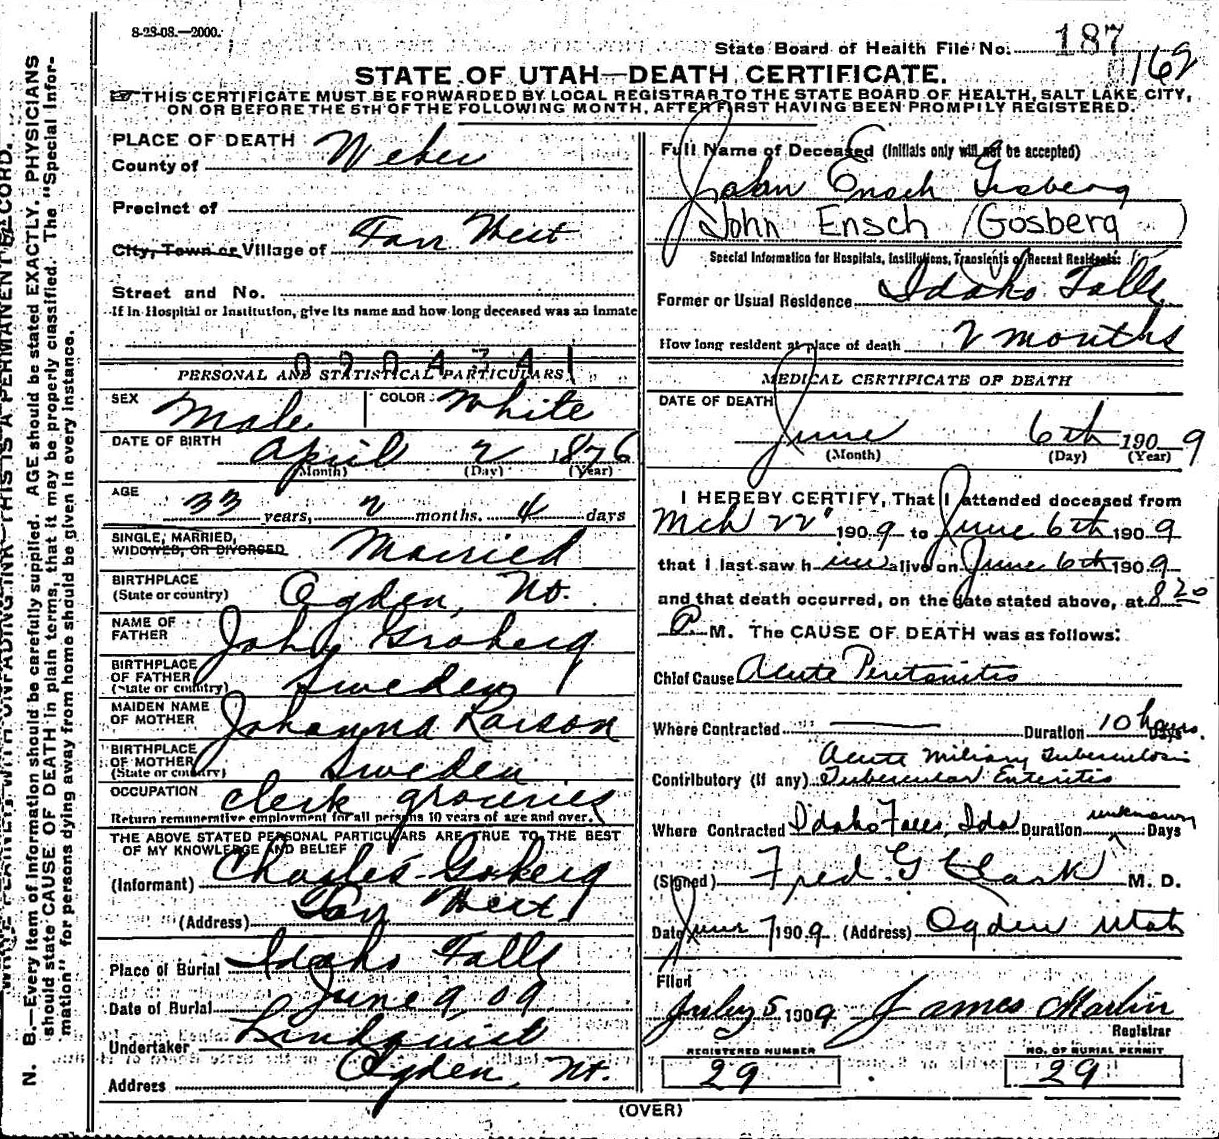 8-23-08.—2000.
State Board of Health File No. 187
162
STATE OF UTAH—DEATH CERTIFICATE.
THIS CERTIFICATE MUST BE FORWARDED BY LOCAL REGISTRAR TO THE STATE BOARD OF HEALTH, SALT LAKE CITY,
ON OR BEFORE THE 5TH OF THE FOLLOWING MONTH, AFTER FIRST HAVING BEEN PROMPTLY REGISTERED.
PLACE OF DEATH
County of Weber
Precinct of
City, Town or Village of Farr West
Street and No.
If in Hospital or Institution, give its name and how long deceased was an inmate
PERSONAL AND STATISTICAL PARTICULARS
SEX Male COLOR White
DATE OF BIRTH
April 2 1876
(Month) (Day) (Year)
AGE
33 years, 2 months. 4 days
SINGLE, MARRIED,
WIDOWED, OR DIVORCED Married
BIRTHPLACE
(State or country) Ogden, Ut.
NAME OF
FATHER John Groberg
BIRTHPLACE
OF FATHER
(State or country) Sweden
MAIDEN NAME
OF MOTHER Johanna Larson
BIRTHPLACE
OF MOTHER
(State or country) Sweden
OCCUPATION clerk groceries
Return remunerative employment for all persons 10 years of age and over.
THE ABOVE STATED PERSONAL PARTICULARS ARE TRUE TO THE BEST
OF MY KNOWLEDGE AND BELIEF
(Informant) Charles
(Address) Farr West
Place of Burial Idaho Falls
Date of Burial June 9 09
Undertaker Lindquist
Address Ogden, Ut.
Full Name of Deceased (Initials only will not be accepted)
John Ensch
John Ensch (Gosberg )
Special Information for Hospitals, Institutions, Transients or Recent Residents:
Former or Usual Residence Idaho Falls
How long resident at place of death 2 months
MEDICAL CERTIFICATE OF DEATH
DATE OF DEATH
June 6th 1909
(Month) (Day) (Year)
I HEREBY CERTIFY, That I attended deceased from
Mch 22" 1909 to June 6th 1909
that I last saw him alive on June 6th 1909
and that death occurred, on the date stated above, at 8 20
P. M. The CAUSE OF DEATH was as follows:
Chief Cause Acute Peritonitis
Where Contracted Duration 10 hours. Days
Acute Miliary Tuberculosis
Contributory (if any) Tubercular Enteritis
Where Contracted Idaho Falls, Ida Duration unknown Days
(Signed) Fred G Clark M. D.
Date June 7 1909 (Address) Ogden Utah
Filed
July 5 1909 James Martin
Registrar
REGISTERED NUMBER NO. OF BURIAL PERMIT
29 29
(OVER)
N. B.—Every item of information should be carefully supplied. AGE should be stated EXACTLY. PHYSICIANS
should state CAUSE OF DEATH in plain terms, that it may be properly classified. The "Special Infor-
mation" for persons dying away from home should be given in every instance.
WRITE PLAINLY, WITH UNFADING INK—THIS IS A PERMANENT RECORD.